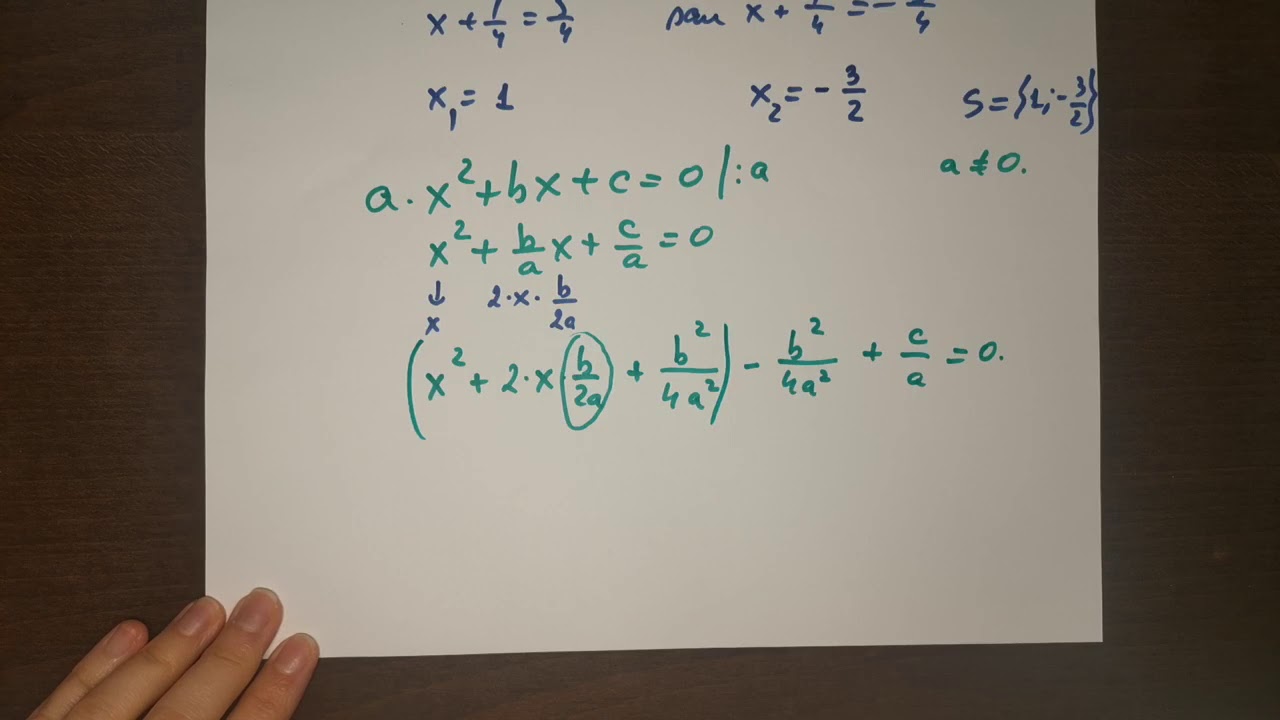 x + 1/4 = 5/4 sau x + 1/4 = -5/4
x₁ = 1 x₂ = -3/2 S = {1; -3/2}
a·x² + bx + c = 0 |:a a ≠ 0.
x² + b/a x + c/a = 0
↓ 2·x·b/2a
x
(x² + 2·x b/2a + b²/4a²) - b²/4a² + c/a = 0.